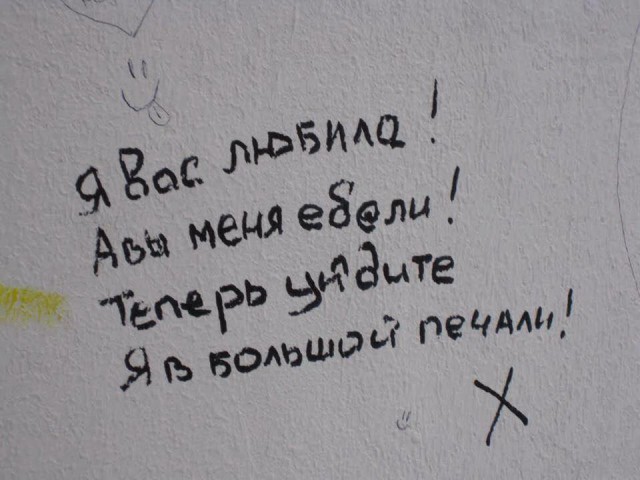 Я Вас любила!
А вы меня ебали!
Теперь уйдите
Я в большой печали!
X